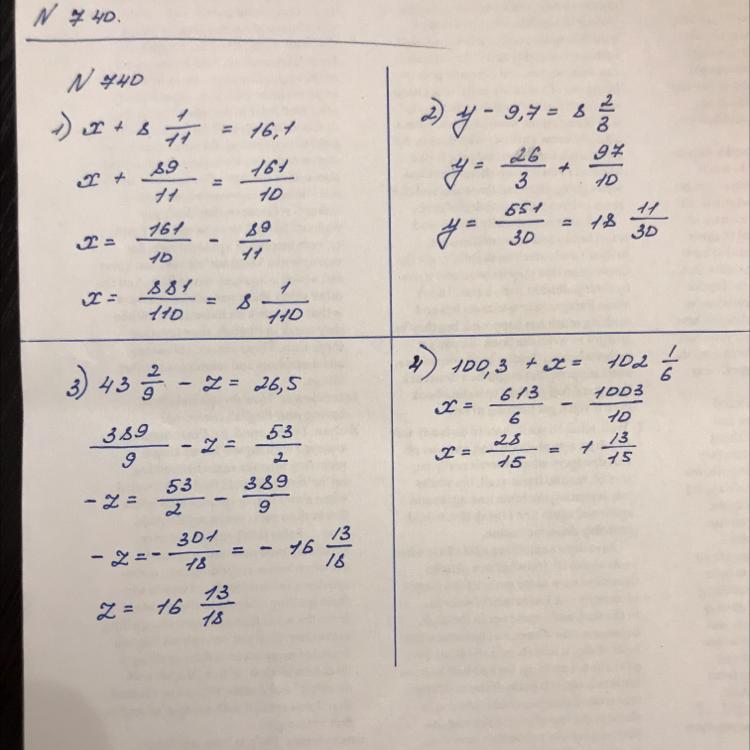 N 740.
N 740
1) x + 8 1/11 = 16,1
x + 89/11 = 161/10
x = 161/10 - 89/11
x = 881/110 = 8 1/110
2) y - 9,7 = 8 2/3
y = 26/3 + 97/10
y = 551/30 = 18 11/30
3) 43 2/9 - z = 26,5
389/9 - z = 53/2
- z = 53/2 - 389/9
- z = - 301/18 = - 16 13/18
z = 16 13/18
4) 100,3 + x = 102 1/6
x = 613/6 - 1003/10
x = 28/15 = 1 13/15